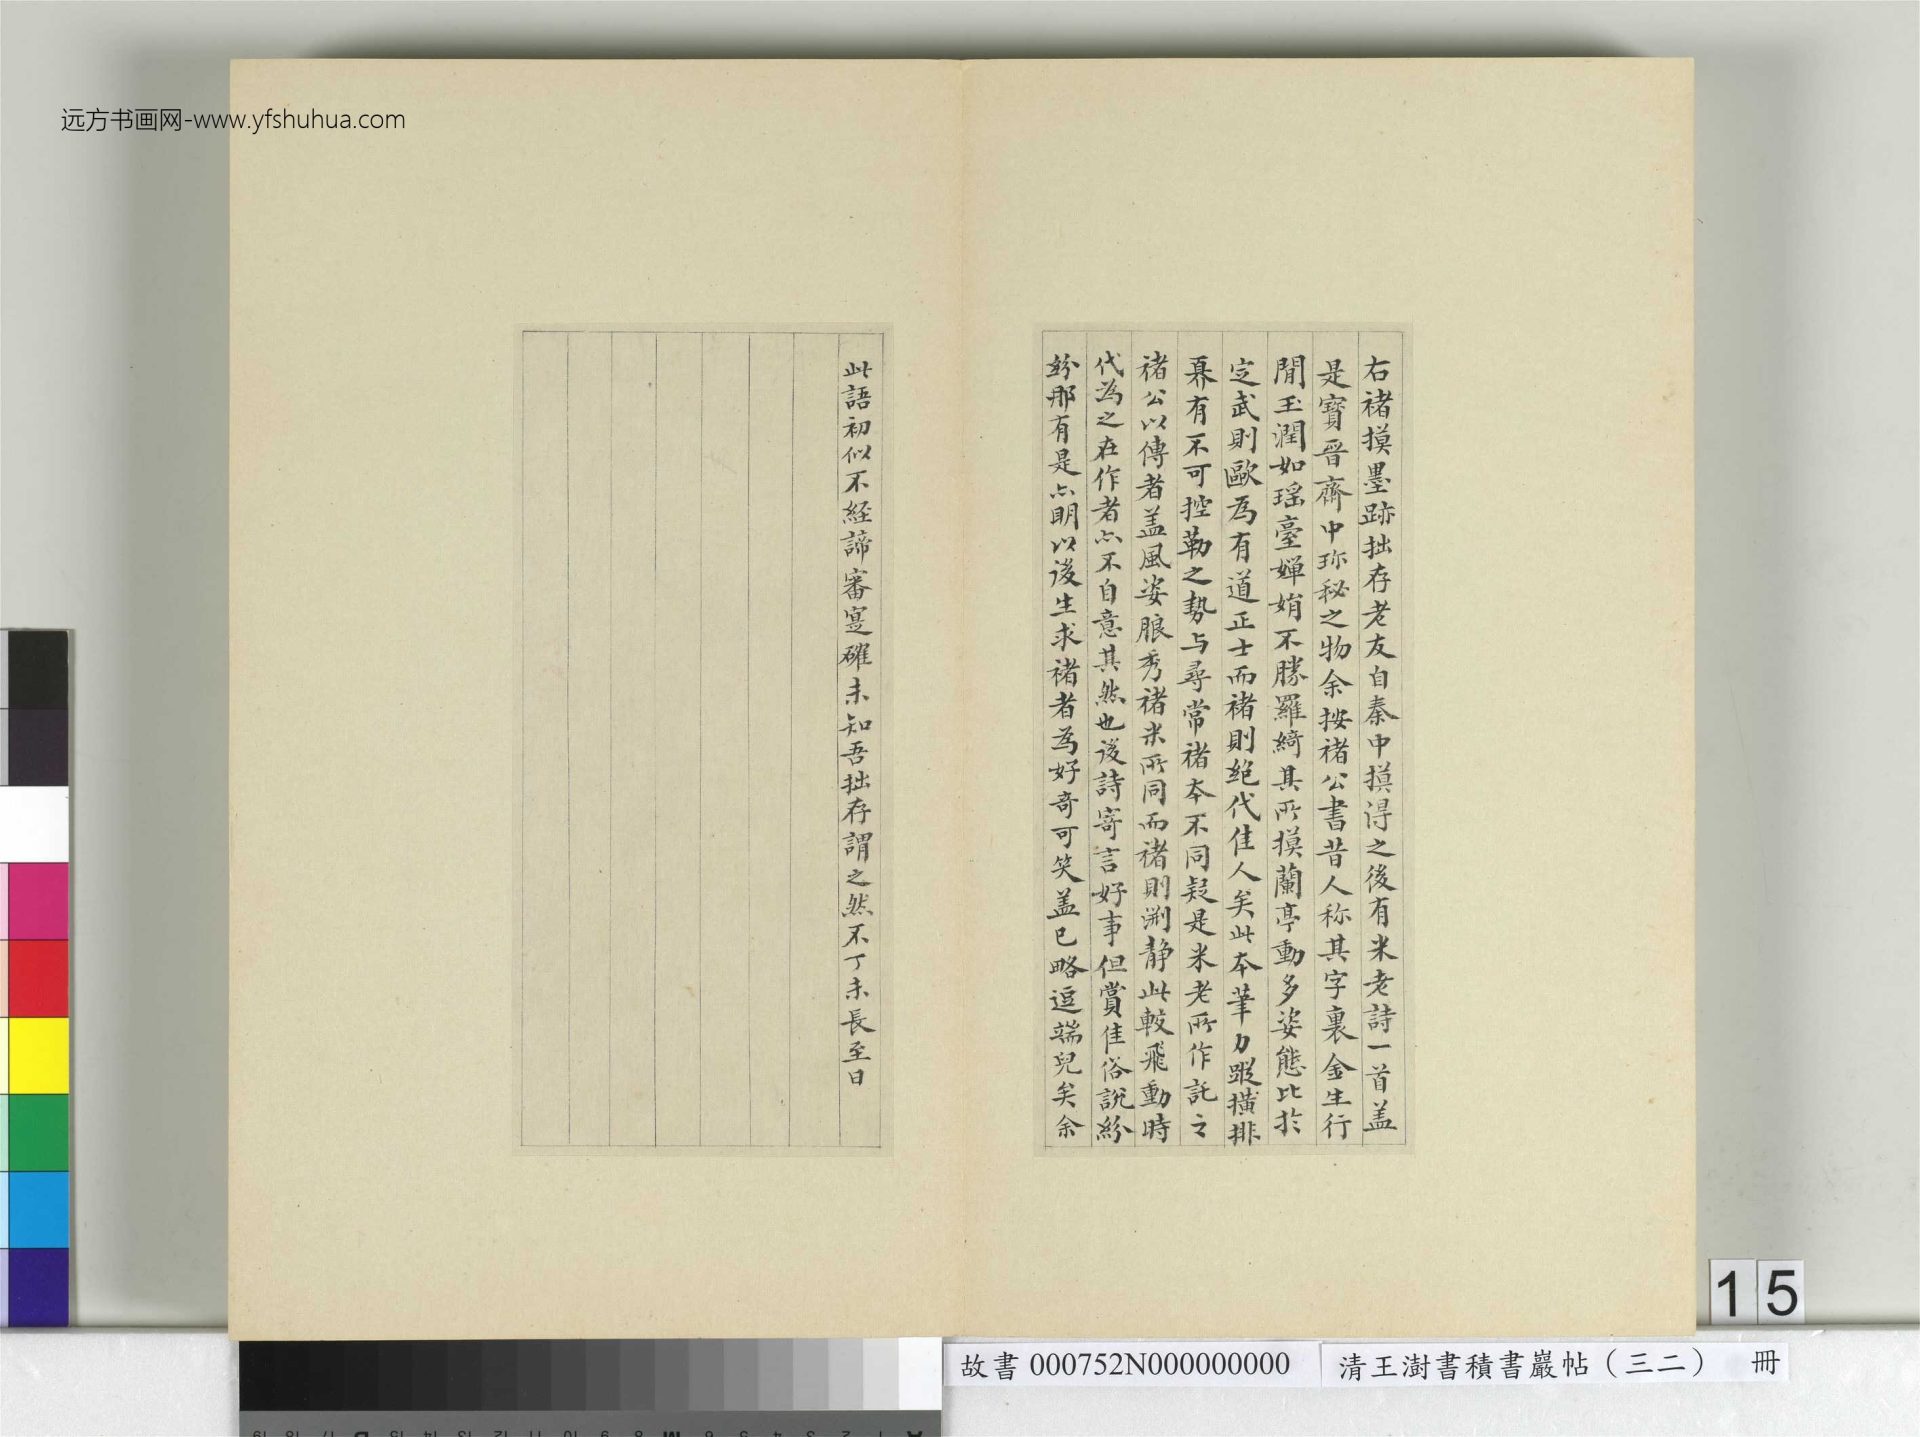 远方书画网-www.yfshuhua.com
右褚摸墨跡拙存老友自秦中摸得之後有米老詩一首盖
是寶晉齋中珎秘之物余按褚公書昔人称其字裏金生行
閒玉潤如瑶臺嬋娟不勝羅綺其所摸蘭亭動多姿態比於
定武則歐為有道正士而褚則絕代佳人矣此本筆力蹤横排
奡有不可控勒之勢与尋常褚本不同疑是米老所作託之
褚公以傳者盖風姿朖秀褚米所同而褚則渊静此較飛動時
代為之在作者亦不自意其然也後詩寄言好事但賞佳俗說紛
紛那有是亦明以後生求褚者為好奇可笑盖已略逗端兒矣余
此語初似不經諦審寔確未知吾拙存謂之然不丁未長至日
15
故書 000752N000000000
清王澍書積書巖帖（三二） 冊